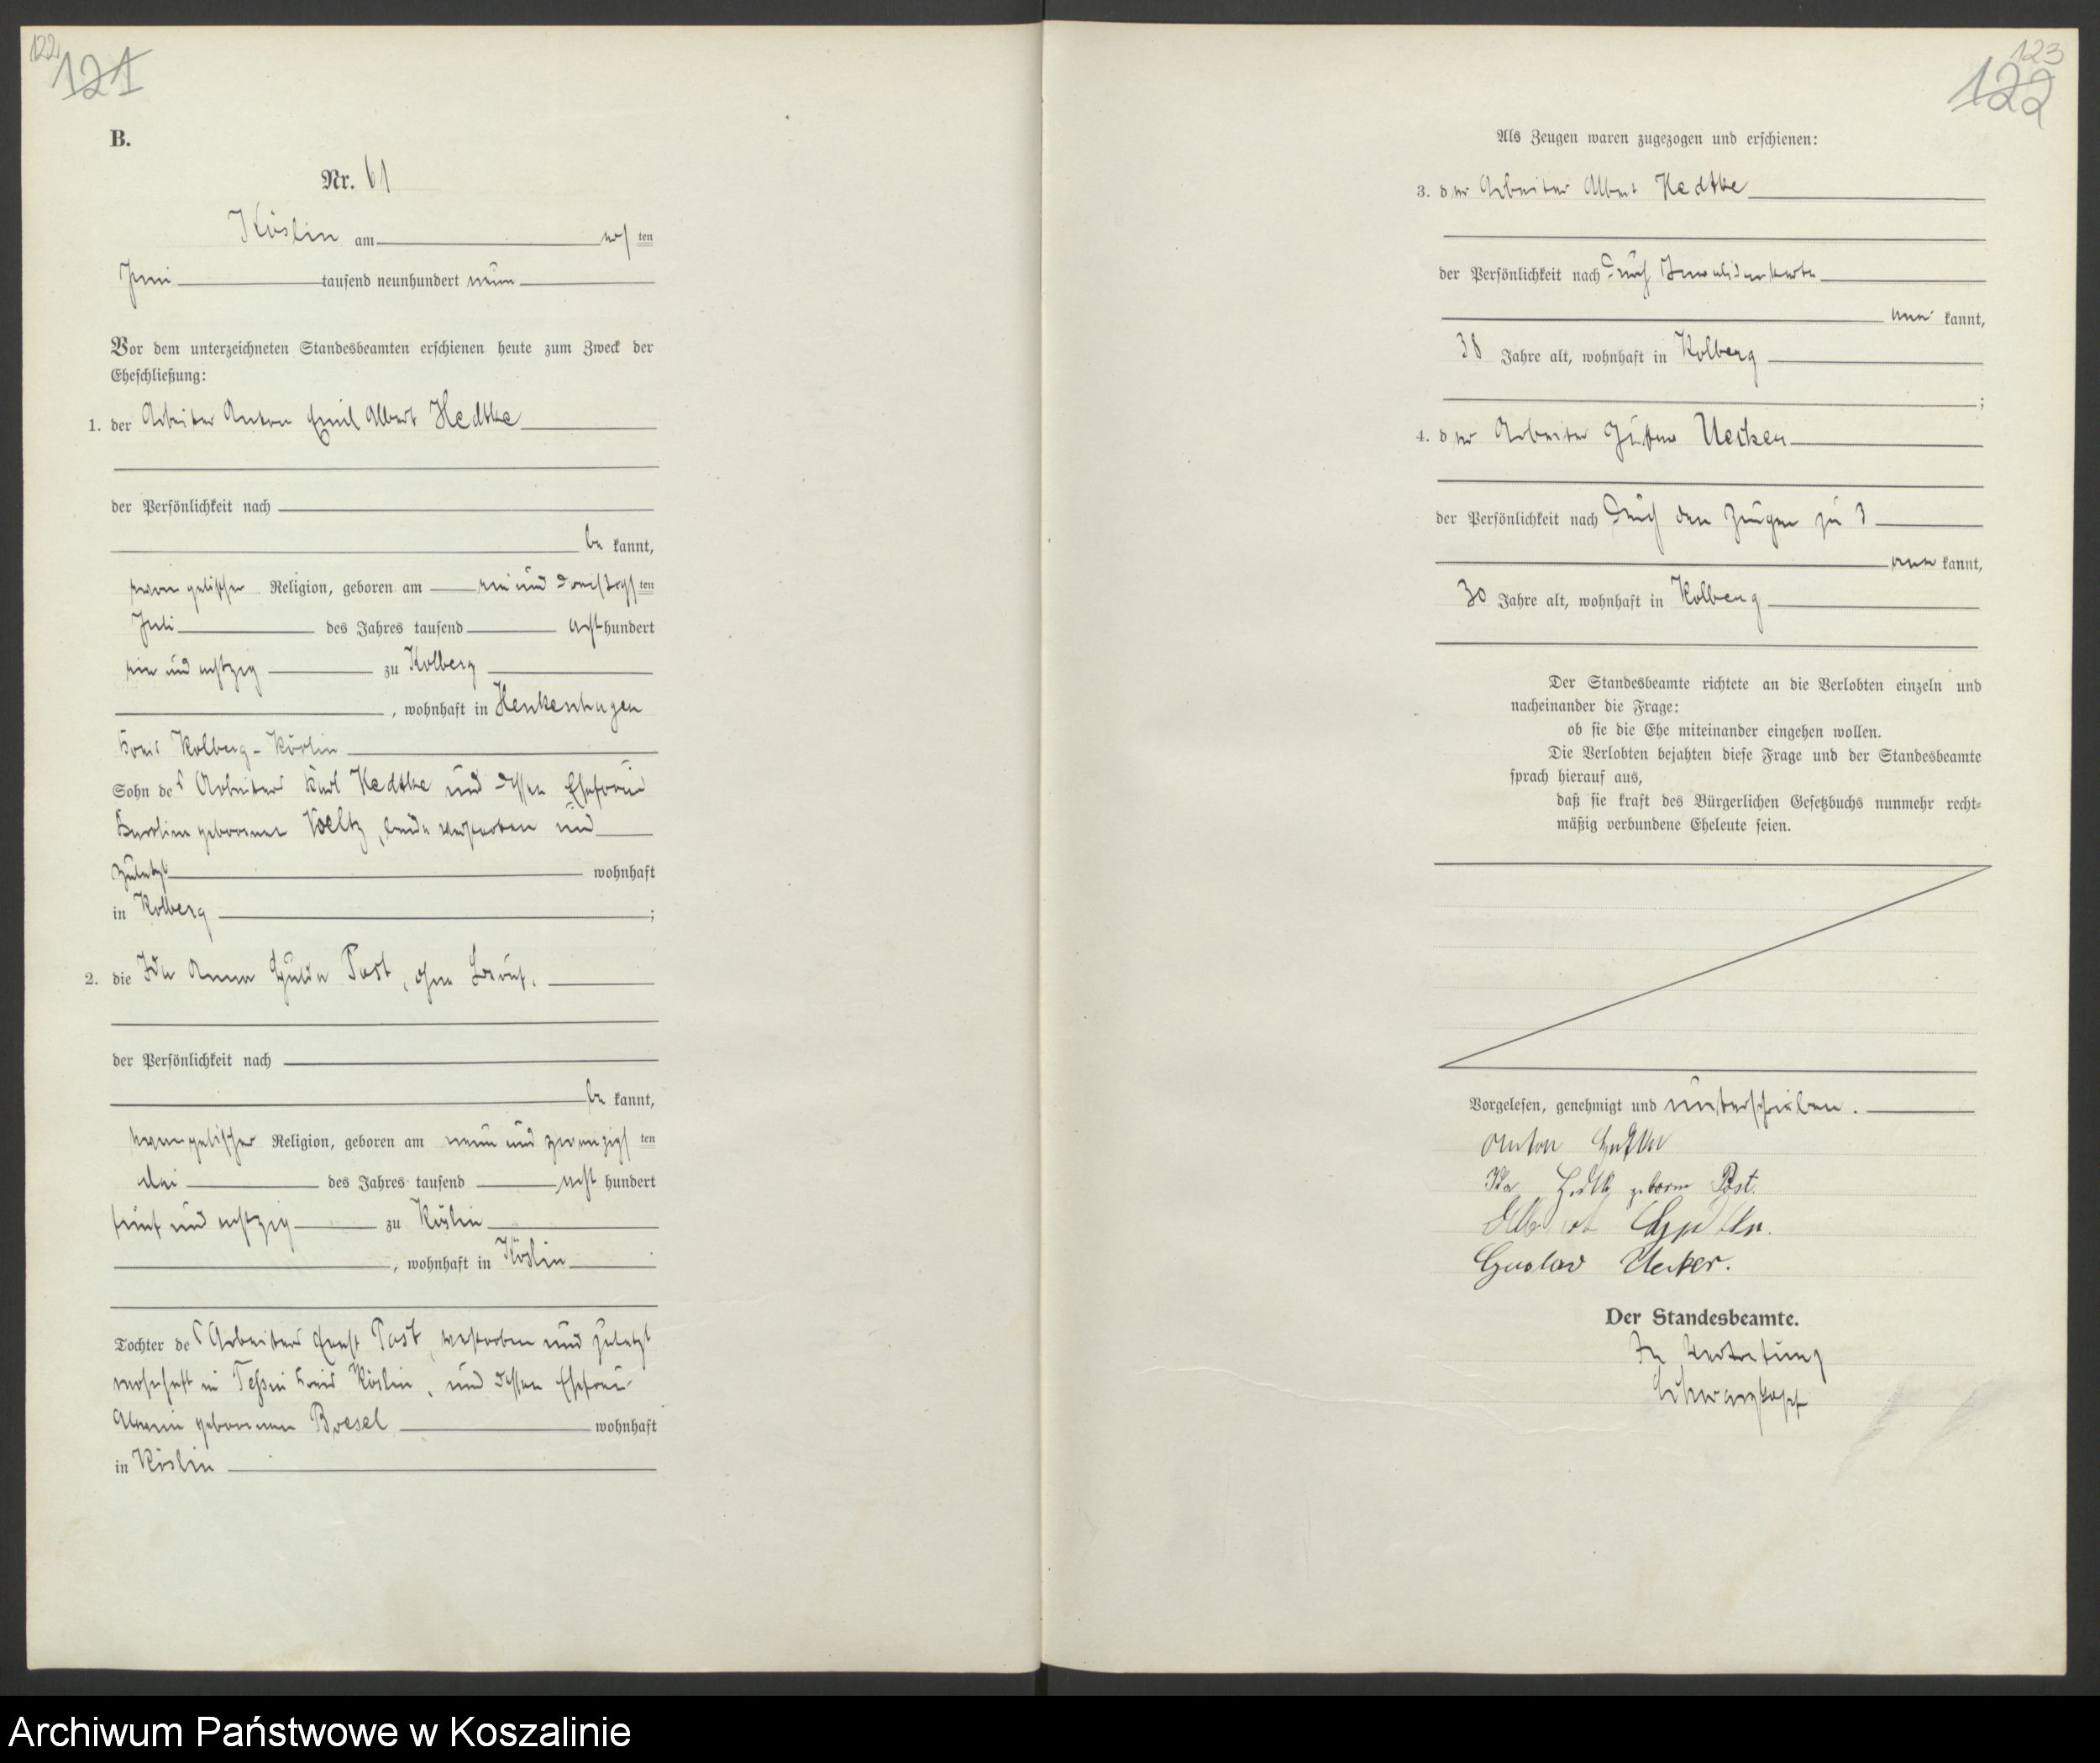 122
121
B.
Nr. 61
Köslin am ten
Juni tausend neunhundert neun
Vor dem unterzeichneten Standesbeamten erschienen heute zum Zweck der
Eheschließung:
1. der Arbeiter Anton Emil Albert Hedtke
der Persönlichkeit nach
be kannt,
evangelischer Religion, geboren am ein und dreißigs ten
Juli des Jahres tausend acht hundert
ein und achtzig zu Kolberg
, wohnhaft in Henkenhagen
Kreis Kolberg-Körlin
Sohn des Arbeiters Karl Hedtke und dessen Ehefrau
Karoline geborenen Voeltz, beide verstorben und
zuletzt wohnhaft
in Kolberg ;
2. die Ida Anna Hulda Post, ohne Beruf.
der Persönlichkeit nach
be kannt,
evangelischer Religion, geboren am neun und zwanzigs ten
Mai des Jahres tausend acht hundert
fünf und achtzig zu Köslin
, wohnhaft in Köslin
Tochter des Arbeiters Ernst Post, verstorben und zuletzt
wohnhaft in Teßin Kreis Köslin, und dessen Ehefrau
geborenen Boesel wohnhaft
in Köslin
123
122
Als Zeugen waren zugezogen und erschienen:
3. der Arbeiter Albert Hedtke
der Persönlichkeit nach durch Invalidenkarte
aner kannt,
38 Jahre alt, wohnhaft in Kolberg
;
4. der Arbeiter Gustav Uecker
der Persönlichkeit nach durch den Zeugen zu 3
aner kannt,
30 Jahre alt, wohnhaft in Kolberg
Der Standesbeamte richtete an die Verlobten einzeln und
nacheinander die Frage:
ob sie die Ehe miteinander eingehen wollen.
Die Verlobten bejahten diese Frage und der Standesbeamte
sprach hierauf aus,
daß sie kraft des Bürgerlichen Gesetzbuchs nunmehr recht-
mäßig verbundene Eheleute seien.
Vorgelesen, genehmigt und unterschrieben.
Anton Hedtke
Ida Hedtke geborne Post.
Albert Hedtke.
Gustav Uecker.
Der Standesbeamte.
In Vertretung
Schwarzkopf
Archiwum Państwowe w Koszalinie